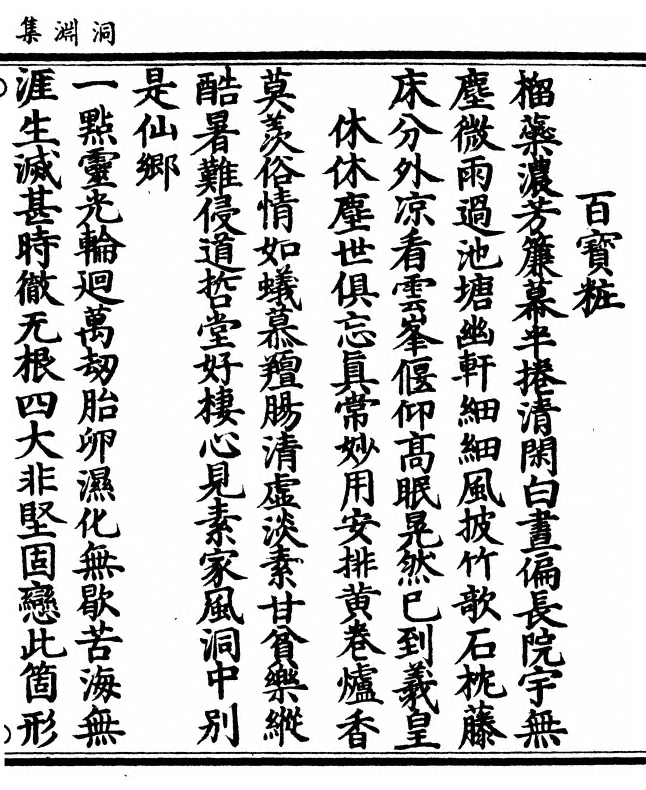 洞淵集
百寶粧
榴蘂濃芳簾幕半捲清閑白晝偏長院宇無
塵微雨過池塘幽軒細細風披竹欹石枕藤
床分外凉看雲峯偃仰髙眠晃然巳到羲皇
休休塵世俱忘真常妙用安排黄卷爐香
莫羡俗情如蟻慕羶腸清虛淡素甘貧樂縱
酷暑難侵道㡳堂好棲心見素家風洞中别
是仙鄉
一點靈光輪迴萬劫胎卵濕化無歇苦海無
涯生滅甚時徹无根四大非堅固戀此箇形